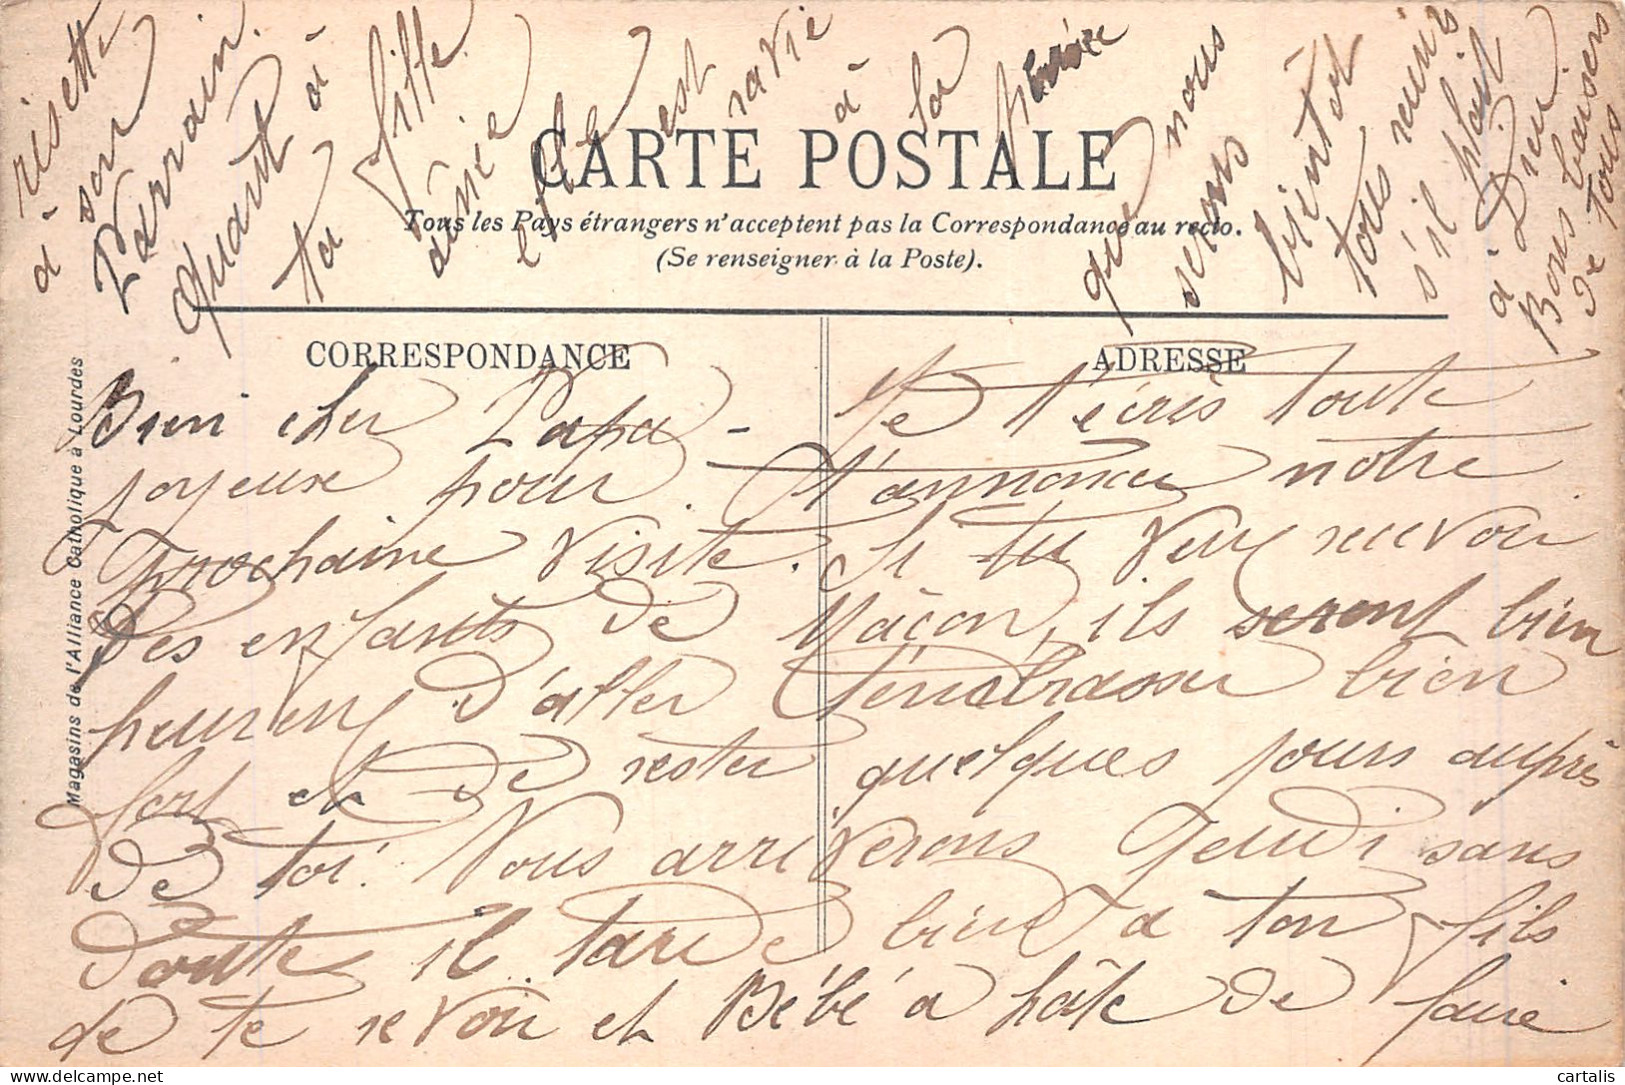 CARTE POSTALE
Tous les Pays étrangers n'acceptent pas la Correspondance au recto.
(Se renseigner à la Poste).
CORRESPONDANCE
ADRESSE
Magasins de l'Alliance Catholique à Lourdes
Bien cher Papa - Je t'écris toute
joyeuse pour t'annoncer notre
prochaine visite. Si tu veux recevoir
des enfants de Mâcon, ils seront bien
heureux d'aller t'embrasser bien
fort et de rester quelques jours auprès
de toi. Nous arriverons Jeudi sans
doute il tarde bien à ton fils
de te revoir et Bébé a hâte de faire
risette
à son
Parrain.
Quant à
ta fiffe
aînée
elle est
ravie
à la
que nous
serons
bientôt
tous réunis
s'il plaît
à Dieu
Bons baisers
de tous
cartalis